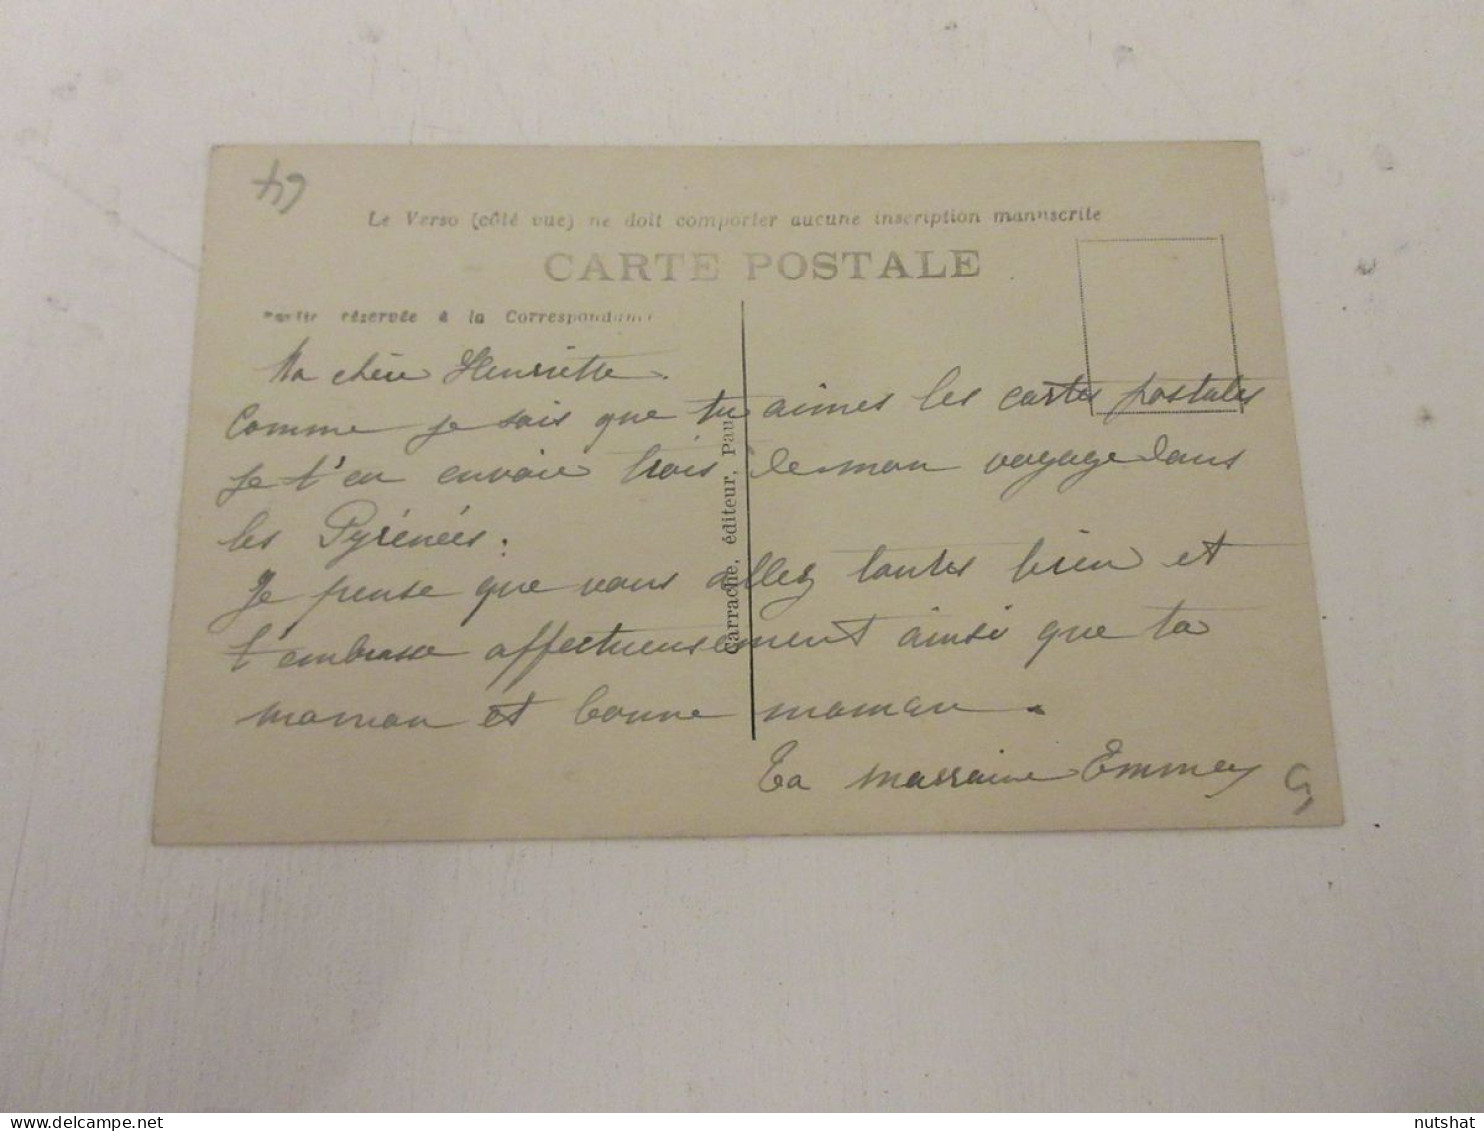 64
Le Verso (côté vue) ne doit comporter aucune inscription manuscrite
CARTE POSTALE
Partie réservée à la Correspondance
Ma chère Henriette.
Comme je sais que tu aimes les cartes postales
je t'en envoie trois de mon voyage dans
les Pyrénées.
Je pense que vous allez toutes bien et
t'embrasse affectueusement ainsi que ta
maman et bonne maman.
Ta marraine Emmey
Carrache, éditeur, Pau
nutshat